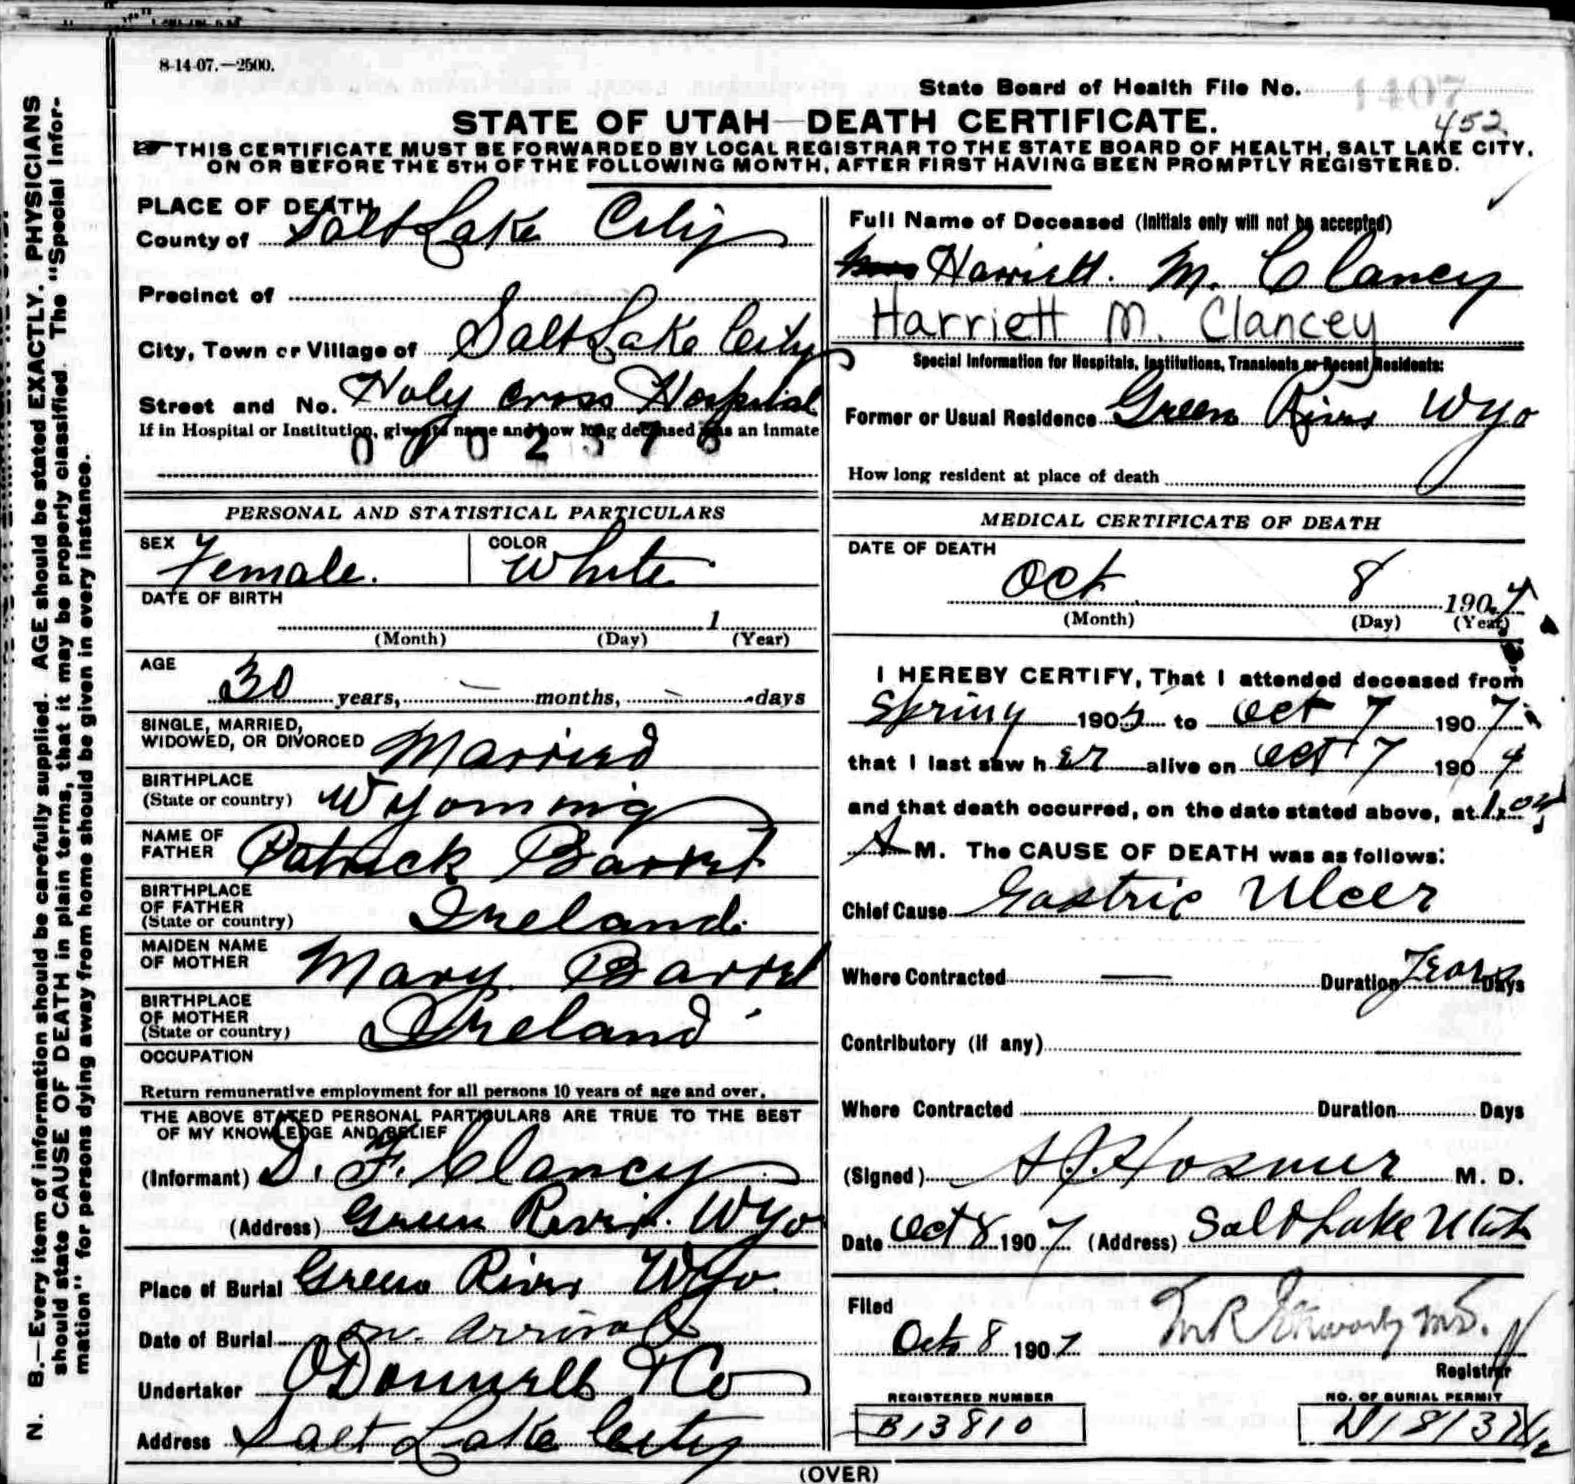 8-14-07.—2500.
State Board of Health File No. 1407
452
STATE OF UTAH—DEATH CERTIFICATE.
THIS CERTIFICATE MUST BE FORWARDED BY LOCAL REGISTRAR TO THE STATE BOARD OF HEALTH, SALT LAKE CITY,
ON OR BEFORE THE 5TH OF THE FOLLOWING MONTH, AFTER FIRST HAVING BEEN PROMPTLY REGISTERED.
N. B.—Every item of information should be carefully supplied. AGE should be stated EXACTLY. PHYSICIANS
should state CAUSE OF DEATH in plain terms, that it may be properly classified. The "Special Infor-
mation" for persons dying away from home should be given in every instance.
PLACE OF DEATH
County of Salt Lake City
Precinct of
City, Town or Village of Salt Lake City
Street and No. Holy Cross Hospital
If in Hospital or Institution, give its name and how long deceased was an Inmate
0002376
PERSONAL AND STATISTICAL PARTICULARS
SEX Female. COLOR White
DATE OF BIRTH
1
(Month) (Day) (Year)
AGE
30 years, — months, — days
SINGLE, MARRIED,
WIDOWED, OR DIVORCED Married
BIRTHPLACE
(State or country) Wyoming
NAME OF
FATHER Patrick Barret
BIRTHPLACE
OF FATHER
(State or country) Ireland.
MAIDEN NAME
OF MOTHER Mary Barret
BIRTHPLACE
OF MOTHER
(State or country) Ireland
OCCUPATION
Return remunerative employment for all persons 10 years of age and over.
THE ABOVE STATED PERSONAL PARTICULARS ARE TRUE TO THE BEST
OF MY KNOWLEDGE AND BELIEF
(Informant) D. F. Clancy
(Address) Green River. Wyo
Place of Burial Green River Wyo.
Date of Burial on arrival
Undertaker O'Donnell & Co
Address Salt Lake City
Full Name of Deceased (Initials only will not be accepted)
Mrs Harriett. M. Clancey
Harriett M. Clancey
Special Information for Hospitals, Institutions, Transients or Recent Residents:
Former or Usual Residence Green River Wyo
How long resident at place of death
MEDICAL CERTIFICATE OF DEATH
DATE OF DEATH
Oct 8 1907
(Month) (Day) (Year)
I HEREBY CERTIFY, That I attended deceased from
Spring 1905 to Oct 7 1907
that I last saw h er alive on Oct 7 1907
and that death occurred, on the date stated above, at 1.04
A M. The CAUSE OF DEATH was as follows:
Chief Cause Gastric Ulcer
Where Contracted — Duration Years Days
Contributory (if any)
Where Contracted Duration Days
(Signed) Hosmer M. D.
Date Oct 8 1907 (Address) Salt Lake Utah
Filed
Oct 8 1907
Registrar
REGISTERED NUMBER
B13810
NO. OF BURIAL PERMIT
(OVER)